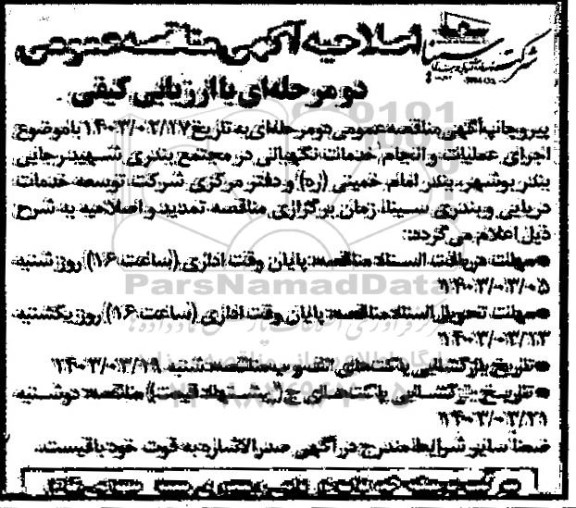 شرکت سینا
اصلاحیه آگهی مناقصه عمومی
دو مرحله‌ای با ارزیابی کیفی
پیرو چاپ آگهی مناقصه عمومی دو مرحله‌ای به تاریخ ۱۴۰۳/۰۲/۲۷ با موضوع
اجرای عملیات و انجام خدمات نگهبانی در مجتمع بندری شهید رجایی
بندر بوشهر، بندر امام خمینی (ره) و دفتر مرکزی شرکت توسعه خدمات
دریایی و بندری سینا، زمان برگزاری مناقصه تمدید و اصلاحیه به شرح
ذیل اعلام می‌گردد:
●مهلت دریافت اسناد مناقصه: پایان وقت اداری (ساعت ۱۶) روز شنبه
۱۴۰۳/۰۳/۰۵
●مهلت تحویل اسناد مناقصه: پایان وقت اداری (ساعت ۱۶) روز یکشنبه
۱۴۰۳/۰۳/
●تاریخ بازگشایی پاکت‌های الف و ب مناقصه: شنبه ۱۴۰۳/۰۳/۱۹
●تاریخ بازگشایی پاکت‌های ج (پیشنهاد قیمت) مناقصه: دوشنبه
۱۴۰۳/۰۳/۲۱
ضمناً سایر شرایط مندرج در آگهی صدرالاشاره به قوت خود باقیست.
ParsNamadData